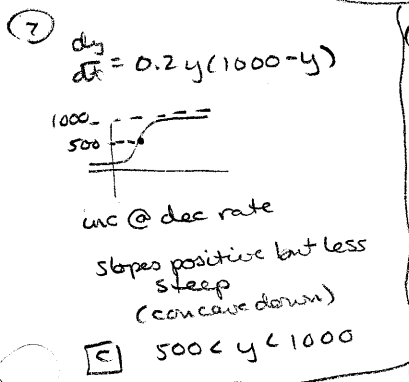 7
dy/dt = 0.2y(1000-y)
1000
500
inc @ dec rate
slopes positive but less
steep
(concave down)
C 500 < y < 1000